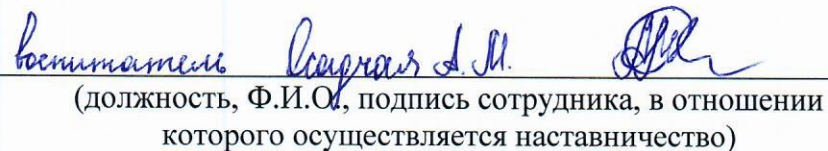 воспитатель Осадчая А.М.
(должность, Ф.И.О., подпись сотрудника, в отношении
которого осуществляется наставничество)